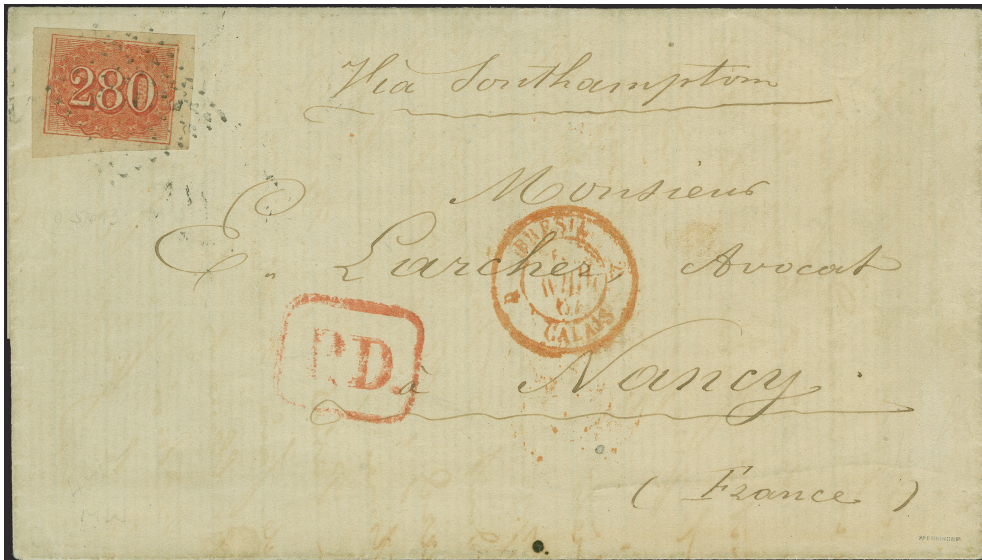 280
Via Southampton
Monsieur
E. Larcher Avocat
BRESIL
CALAIS
P.D.
à Nancy
(France)